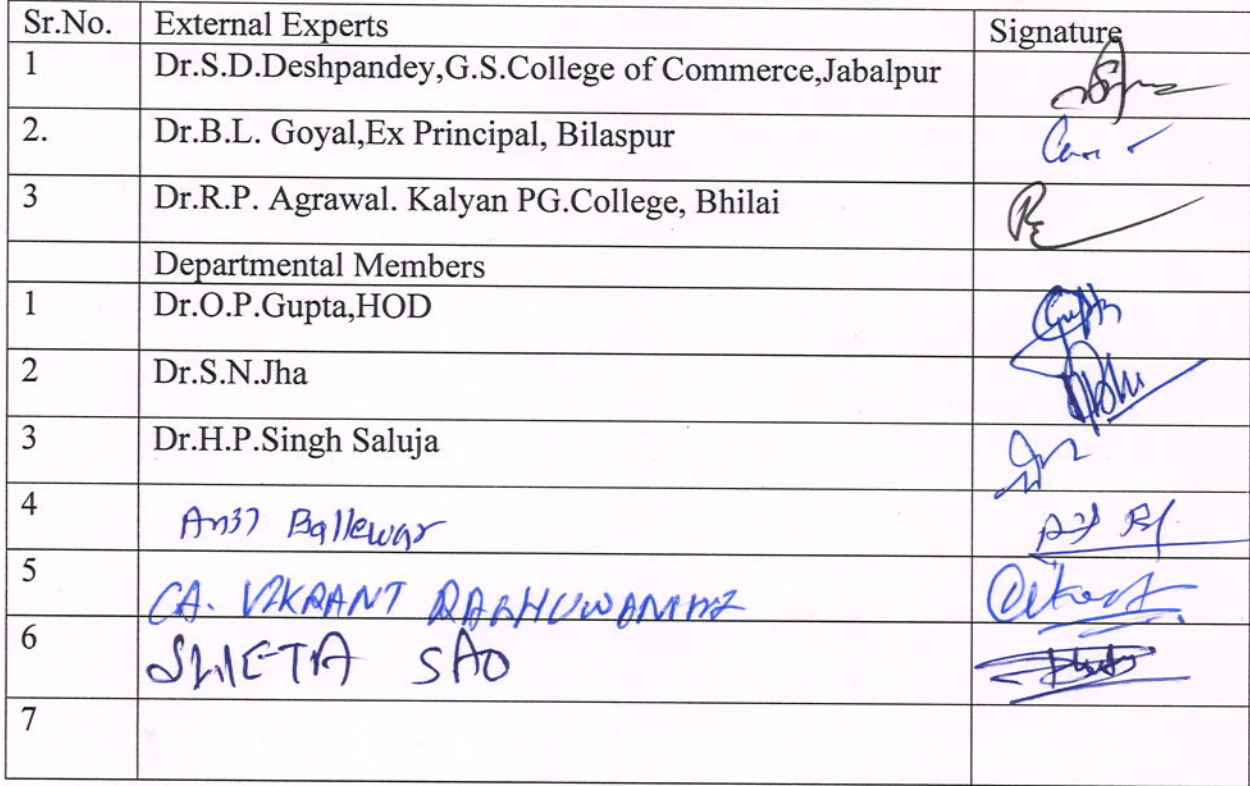 Sr.No. External Experts Signature
1 Dr.S.D.Deshpandey,G.S.College of Commerce,Jabalpur
2. Dr.B.L. Goyal,Ex Principal, Bilaspur
3 Dr.R.P. Agrawal. Kalyan PG.College, Bhilai
Departmental Members
1 Dr.O.P.Gupta,HOD Gupta
2 Dr.S.N.Jha
3 Dr.H.P.Singh Saluja
4 Ballewar
5 CA. VIKRANT RAGHUWANSHI
6 SHWETA SAO
7